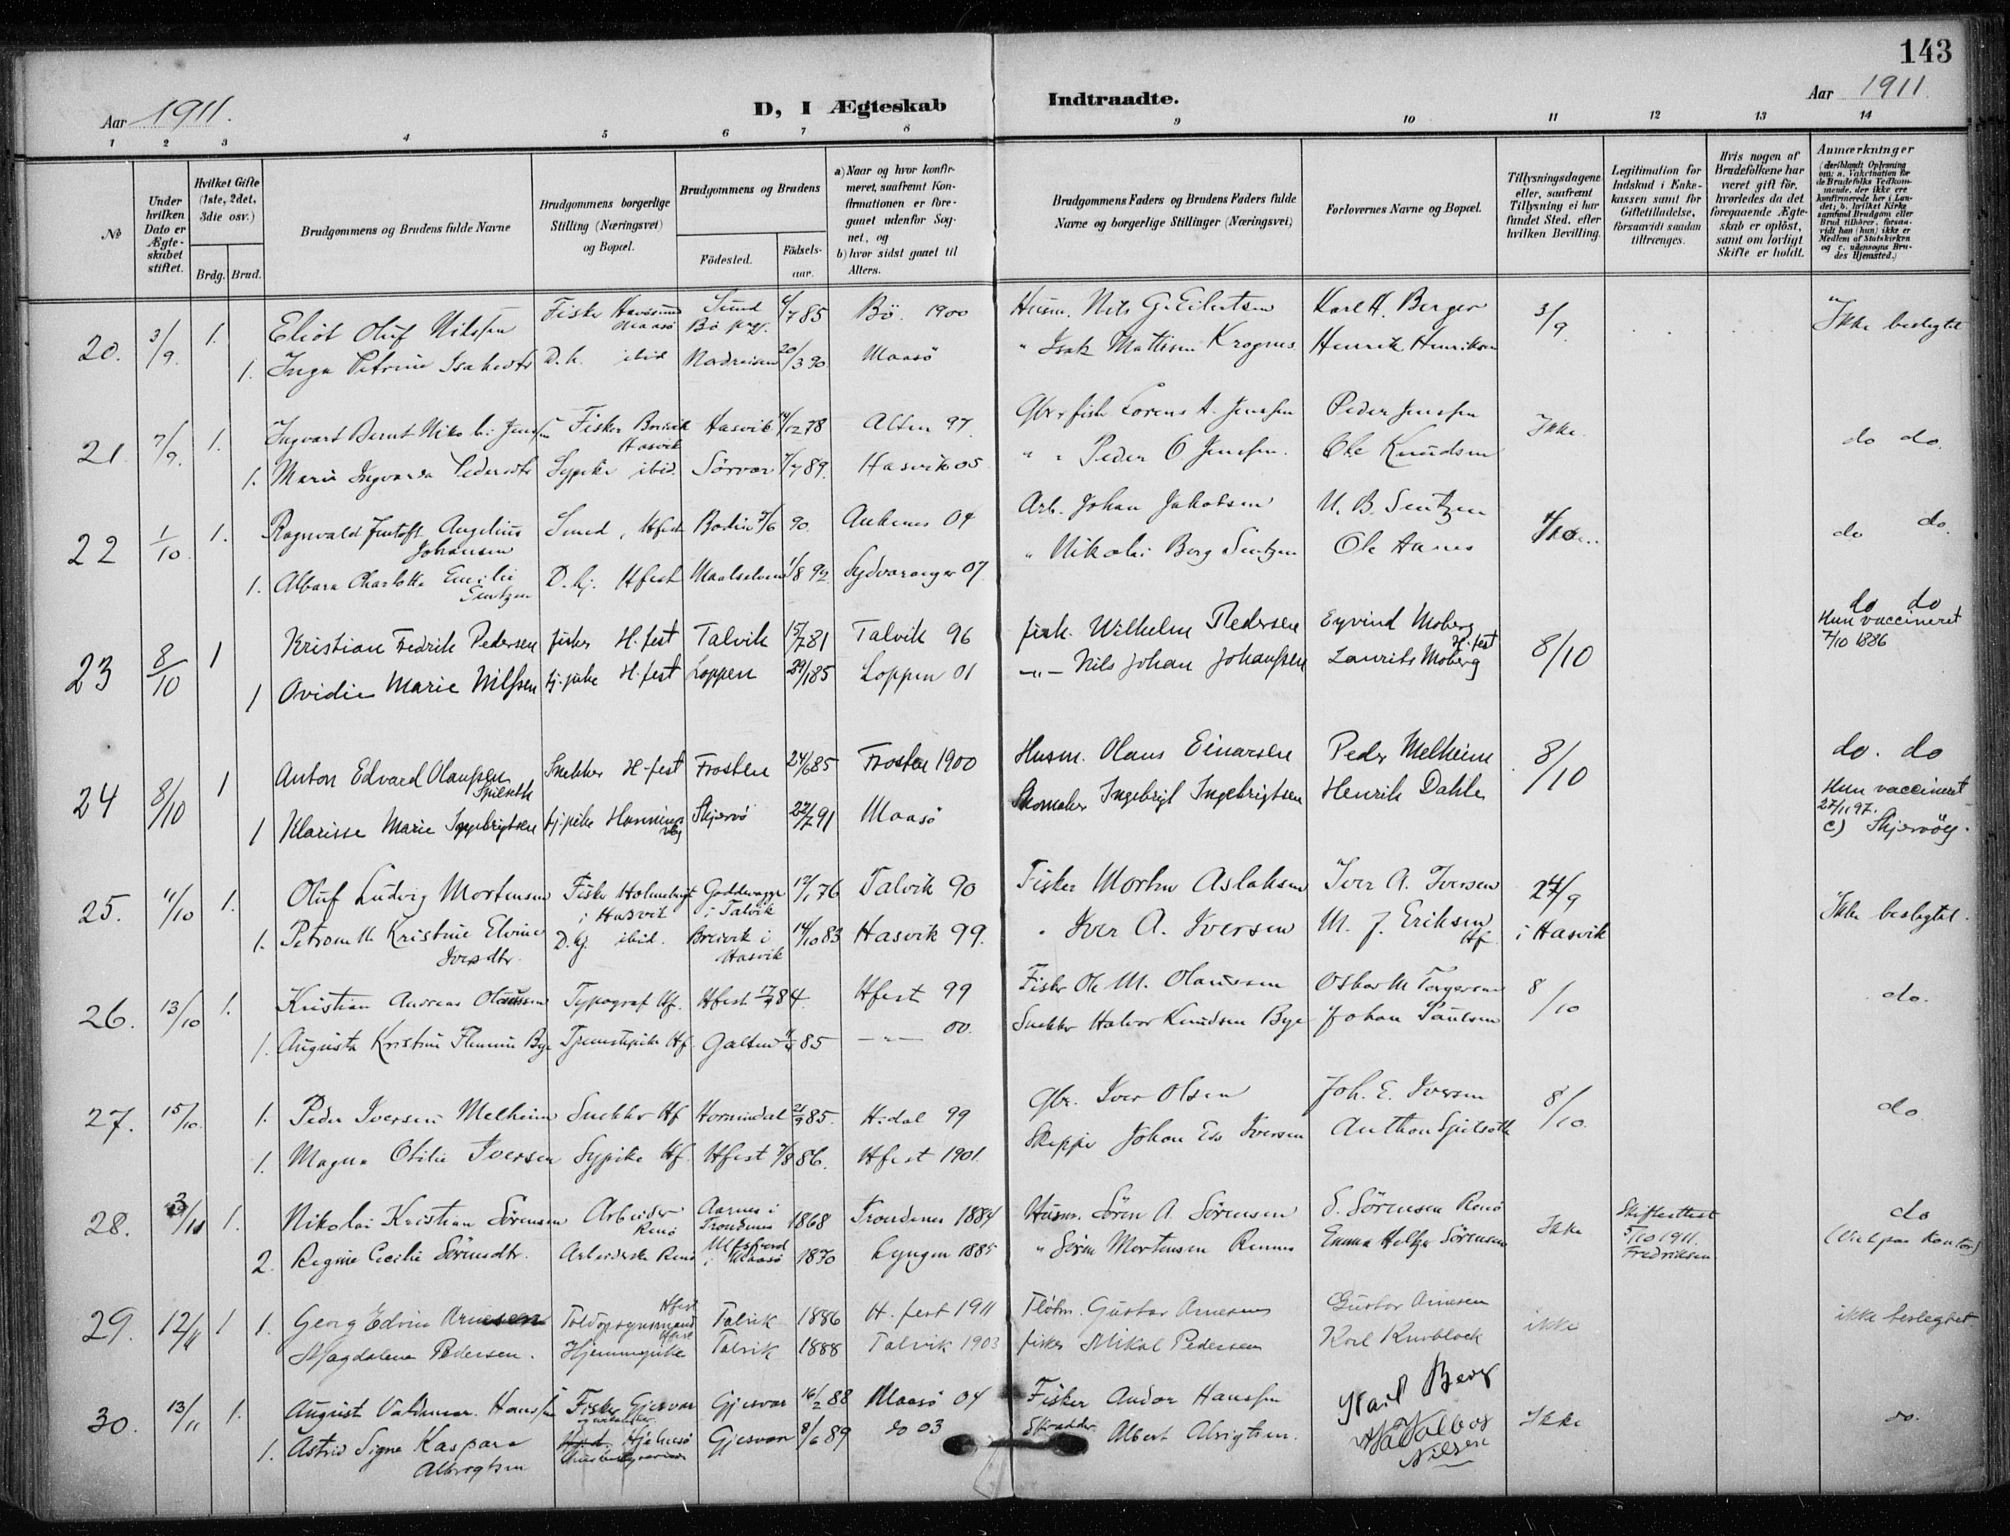 143
Aar 1911.
D, I Ægteskab
Indtraadte.
Aar 1911
1 2 3 4 5 6 7 8 9 10 11 12 13 14
No
Under hvilken Dato er Ægteskabet stiftet.
Hvilket Gifte (1ste, 2det, 3die osv.)
Brdg. Brud.
Brudgommens og Brudens fulde Navne
Brudgommens borgerlige Stilling (Næringsvei) og Bopæl.
Brudgommens og Brudens
Fødested.
Fødselsaar.
a) Naar og hvor konfirmeret, saafremt Konfirmationen er foregaaet udenfor Sognet, og
b) hvor sidst gaaet til Alters.
Brudgommens Faders og Brudens Faders fulde Navne og borgerlige Stillinger (Næringsvei)
Forlovernes Navne og Bopæl.
Tillysningsdagene eller, saafremt Tillysning ei har fundet Sted, efter hvilken Bevilling.
Legitimation for Indskud i Enkekassen samt for Giftetilladelse, forsaavidt saadan tiltrænges.
Hvis nogen af Brudefolkene har været gift før, hvorledes da det foregaaende Ægteskab er opløst, samt om lovligt Skifte er holdt.
Anmærkninger
(deriblandt Oplysning om: a. Vakcination for de Brudefolks Vedkommende, der ikke ere konfirmerede her i Landet; b. hvilket Kirkesamfund Brudgom eller Brud tilhører, forsaavidt han (hun) ikke er Medlem af Statskirken og c. udensogns Brudes Hjemsted.)
20. 3/9. 1. Eliot Oluf Nilssen Fisker Havösund Maasö Sund Bö 6/7 85 Bö. 1900 Husm. Nils G. Eilertsen Karl H. Berger 3/9. Ikke beslegtet
1. Inga Petrine Isaksdtr D. h. ibid Nordreisen 20/3 90. Maasö " Isak Mattisen Krognes Henrik Henriksen
21. 7/9. 1. Ingvart Bernt Nikolai Jenssen Fisker Breivik Hasvik Hasvik 14/12 78 Alten 97. Gbr. fisk. Lorens A. Jenssen Peder Jenssen Ikke. do do.
1. Marie Ingvarda Pedersdtr Sypike ibid. Sörvær 7/7 89. Hasvik 05. " " Peder O Jenssen. Ole Knudsen
22 1/10 1. Ragnvald Angelius Johansen Smed, Hfest Bodin 3/6 90. Ankenes 04 Arb. Johan Jakobsen N. B. Sentzen do do.
1. Charlotte Emilie Sentzen D. hj. Hfest Maalselven 1/8 92. Sydvaranger 07 " Nikolai Berg Sentzen Ole Hanes
23 8/10 1 Kristian Fredrik Pedersen fisker H.fest Talvik 15/7 81 Talvik 96 fisk. Wilhelm Pedersen Eyvind Moberg H.fest 8/10 do do Hun vaccineret 7/10 1886
1 Ovidie Marie Nilssen tj.pike H.fest Loppen 29/1 85 Loppen 01 —"— Nils Johan Johanssen Laurits Moberg
24 8/10 1 Anton Edvard Olaussen Spilseth Snekker H-fest Frosten 24/6 85 Frosten 1900 Husm. Olaus Einarsen Peder Melheim 8/10 do. do
1 Klarisse Marie Ingebrigtsen tj.pike Honningsvåg Skjervö 22/7 91 Maasö Skomaker Ingebrigt Ingebrigtsen Henrik Dahle Hun vaccineret 27/11 97. c) Skjervöy.
25. 11/10 1. Oluf Ludvig Mortensen Fisker i Hasvik i Talvik 12/1 76 Talvik 90 Fisker Morten Aslaksen Iver A. Iversen 24/9 Ikke beslegtet.
1. Kristine Elvine Iversdtr. D. hj ibid. Breivik i Hasvik 14/10 83 Hasvik 99. " Iver A. Iversen M. J. Eriksen Hf. i Hasvik
26. 13/10 1. Kristian Andreas Olaussen Typograf Hf. Hfest 17/9 84 Hfest 99 Fisker Ole M. Olaussen Oskar M Torgersen 8/10 do.
1. Augusta Kristine Bye Tjenestepike Hf. Galten 85 —"— 00. Snekker Halvor Knudsen Bye Johan Paulsen
27. 15/10. 1. Peder Iversen Melheim Snekker Hf Hornindal 21/9 85. H.dal 99 Gbr. Iver Olsen Joh. E. Iversen 8/10. do
1. Magna Otilie Iversen Sypike Hf. Hfest 7/8 86. Hfest 1901. Skipper Johan Iversen Anthon Spilseth
28. 3/11 1. Nikolai Kristian Sörensen Arbeider Renö Aarnes i Trondenes 1868 Trondenes 1884 Husm. Sören A. Sörensen S. Sörensen Renö Ikke Skifteattest 5/10 1911. Fredriksen do
2. Regine Cecilie Sörensdtr. Arbeiderske Renö i Maasö 1870 Lyngen 1885 " Sören Mortensen Rennes Emma Sörensen (Viet paa Kontor)
29. 12/11 1 1. Georg Edvin Arnesen Toldopsynsmand Hfest Talvik 1886 H.fest 1911 Fløtm. Gustav Arnesen Gustav Arnesen ikke ikke beslegtet.
Magdalene Pedersen. Hjemmepike Hfest Talvik 1888 Talvik 1903 fisker Mikal Pedersen Karl Knoblock
30. 13/11 1. August Valdemar Hanssen Fisker Gjesvær Gjesvær 16/2 88 Maasö 04 Fisker Andor Hanssen Karl Berg Ikke do.
1. Astrid Signe Kaspara Albrigtsen Hjelmsö Gjesvær 8/6 89 do 03 Skrædder Albert Albrigtsen. Nilsen